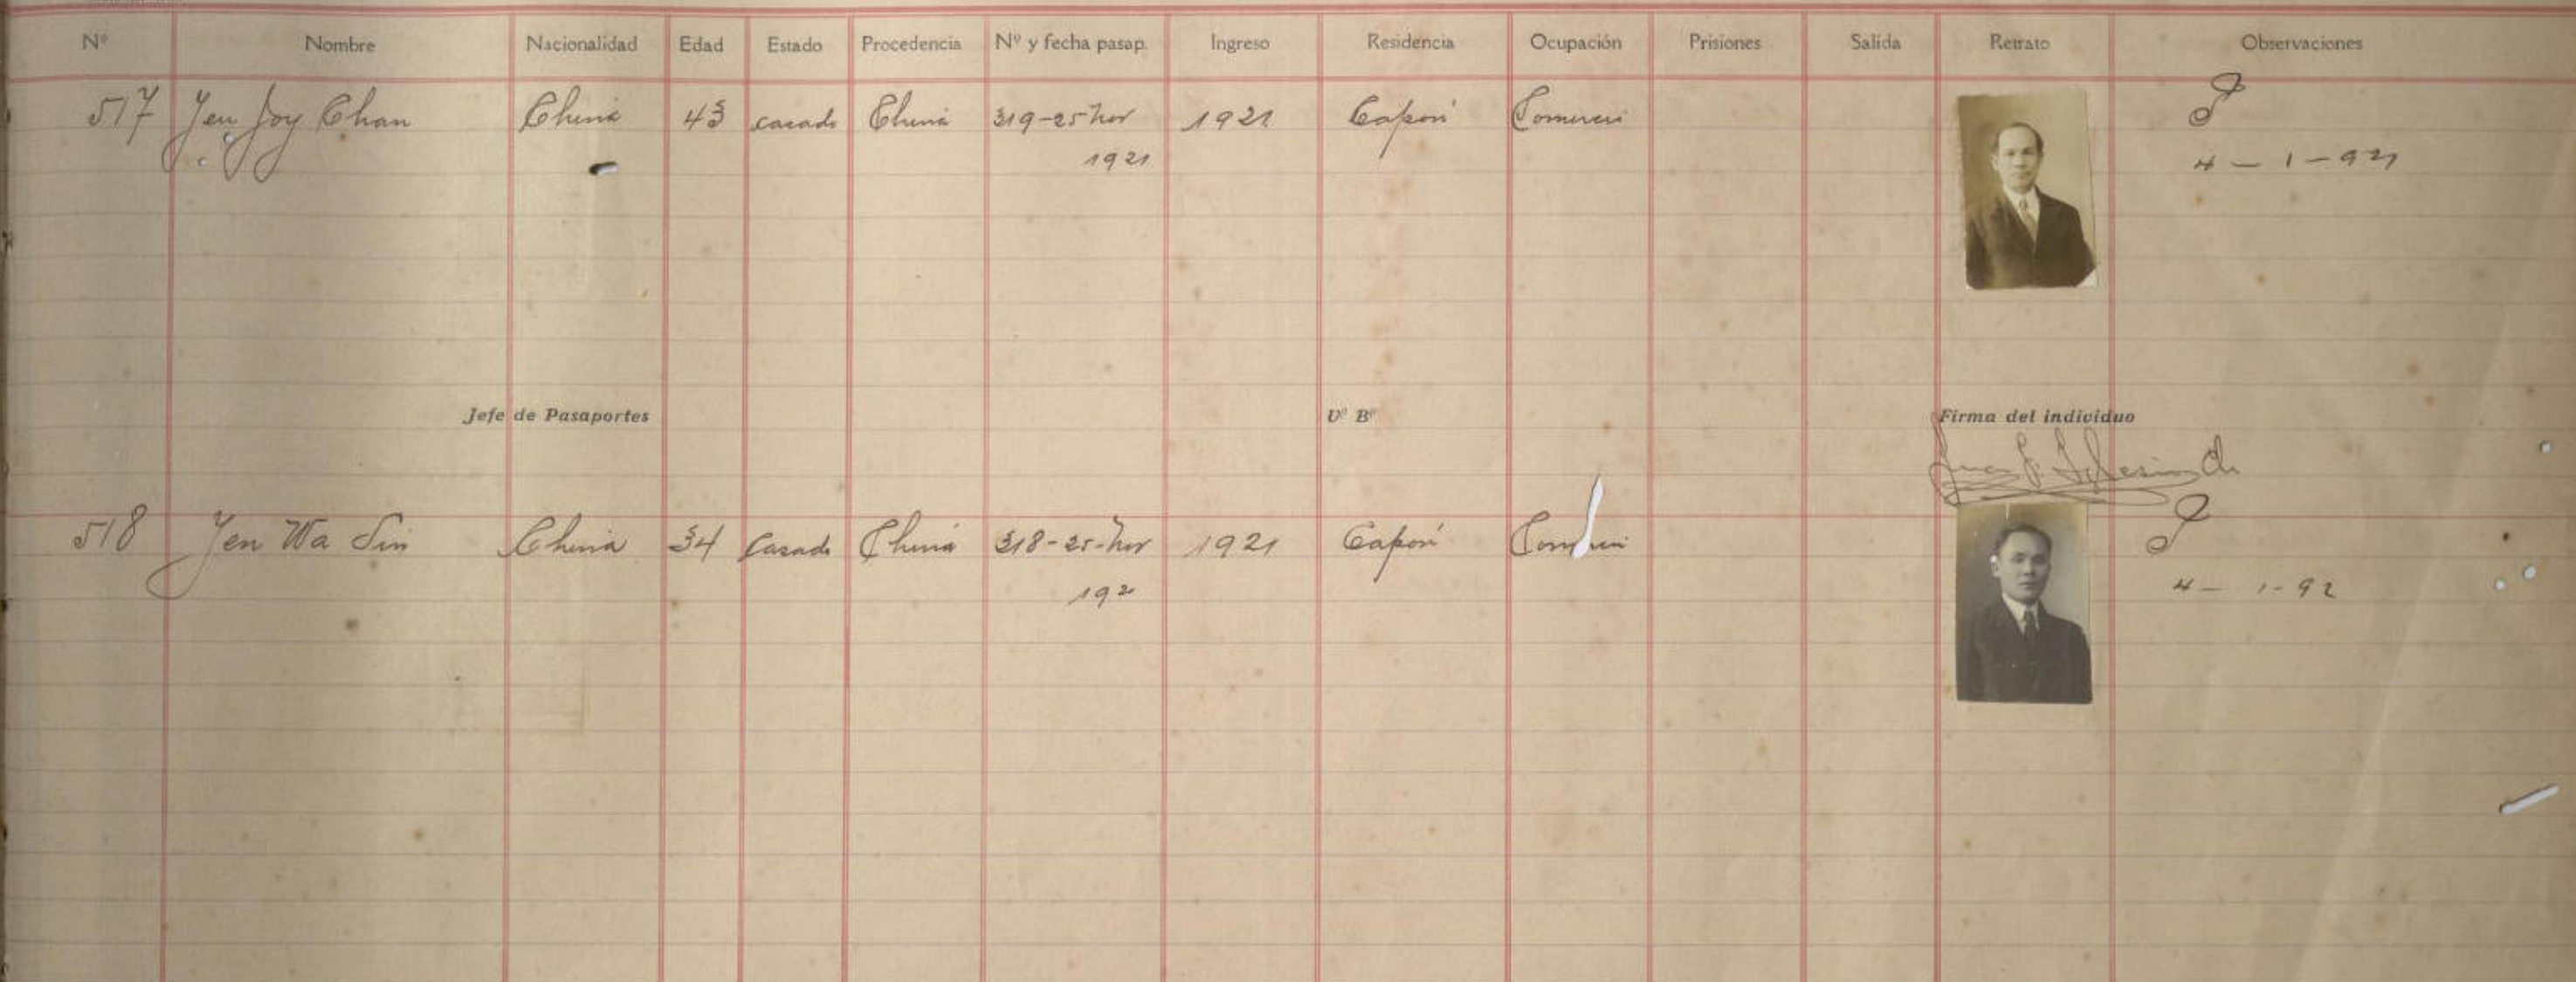 Nº Nombre Nacionalidad Edad Estado Procedencia Nº y fecha pasap. Ingreso Residencia Ocupación Prisiones Salida Retrato Observaciones
517 Jen Joy Chan China 43 casado China 319-25-Nov 1921 Capón Comerci
1921 4-1-921
Jefe de Pasaportes Vº Bº Firma del individuo
518 Jen Wa Sin China 34 Casado China 318-25-Nov 1921 Capón
192 4-1-92